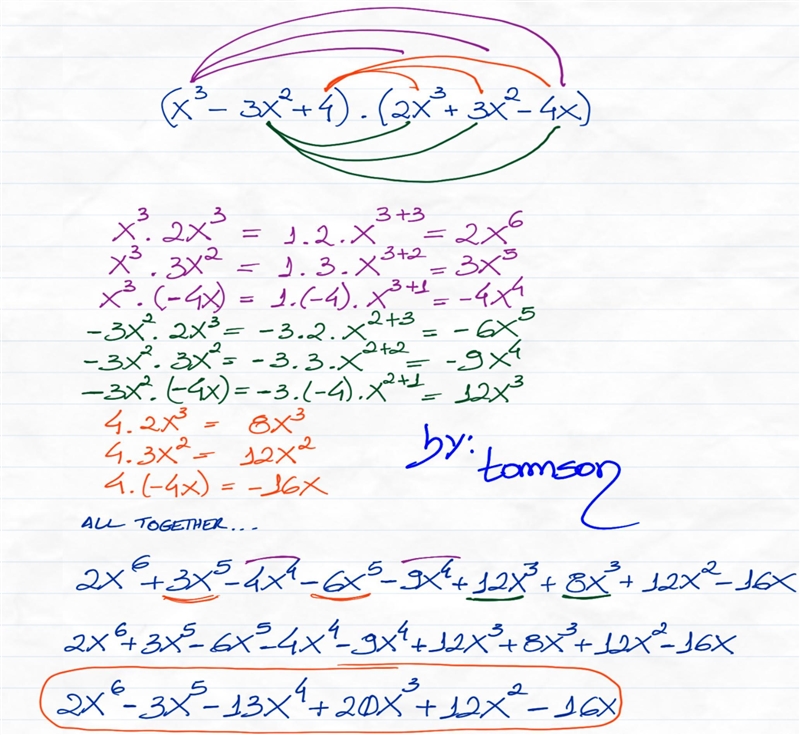 (x³ - 3x² + 4) · (2x³ + 3x² - 4x)
x³ · 2x³ = 1.2.x³⁺³ = 2x⁶
x³ · 3x² = 1.3.x³⁺² = 3x⁵
x³ · (-4x) = 1.(-4).x³⁺¹ = -4x⁴
-3x² · 2x³ = -3.2.x²⁺³ = -6x⁵
-3x² · 3x² = -3.3.x²⁺² = -9x⁴
-3x² · (-4x) = -3.(-4).x²⁺¹ = 12x³
4.2x³ = 8x³
4.3x² = 12x²
4.(-4x) = -16x
by:
tomson
ALL TOGETHER...
2x⁶ + 3x⁵ - 4x⁴ - 6x⁵ - 9x⁴ + 12x³ + 8x³ + 12x² - 16x
2x⁶ + 3x⁵ - 6x⁵ - 4x⁴ - 9x⁴ + 12x³ + 8x³ + 12x² - 16x
2x⁶ - 3x⁵ - 13x⁴ + 20x³ + 12x² - 16x